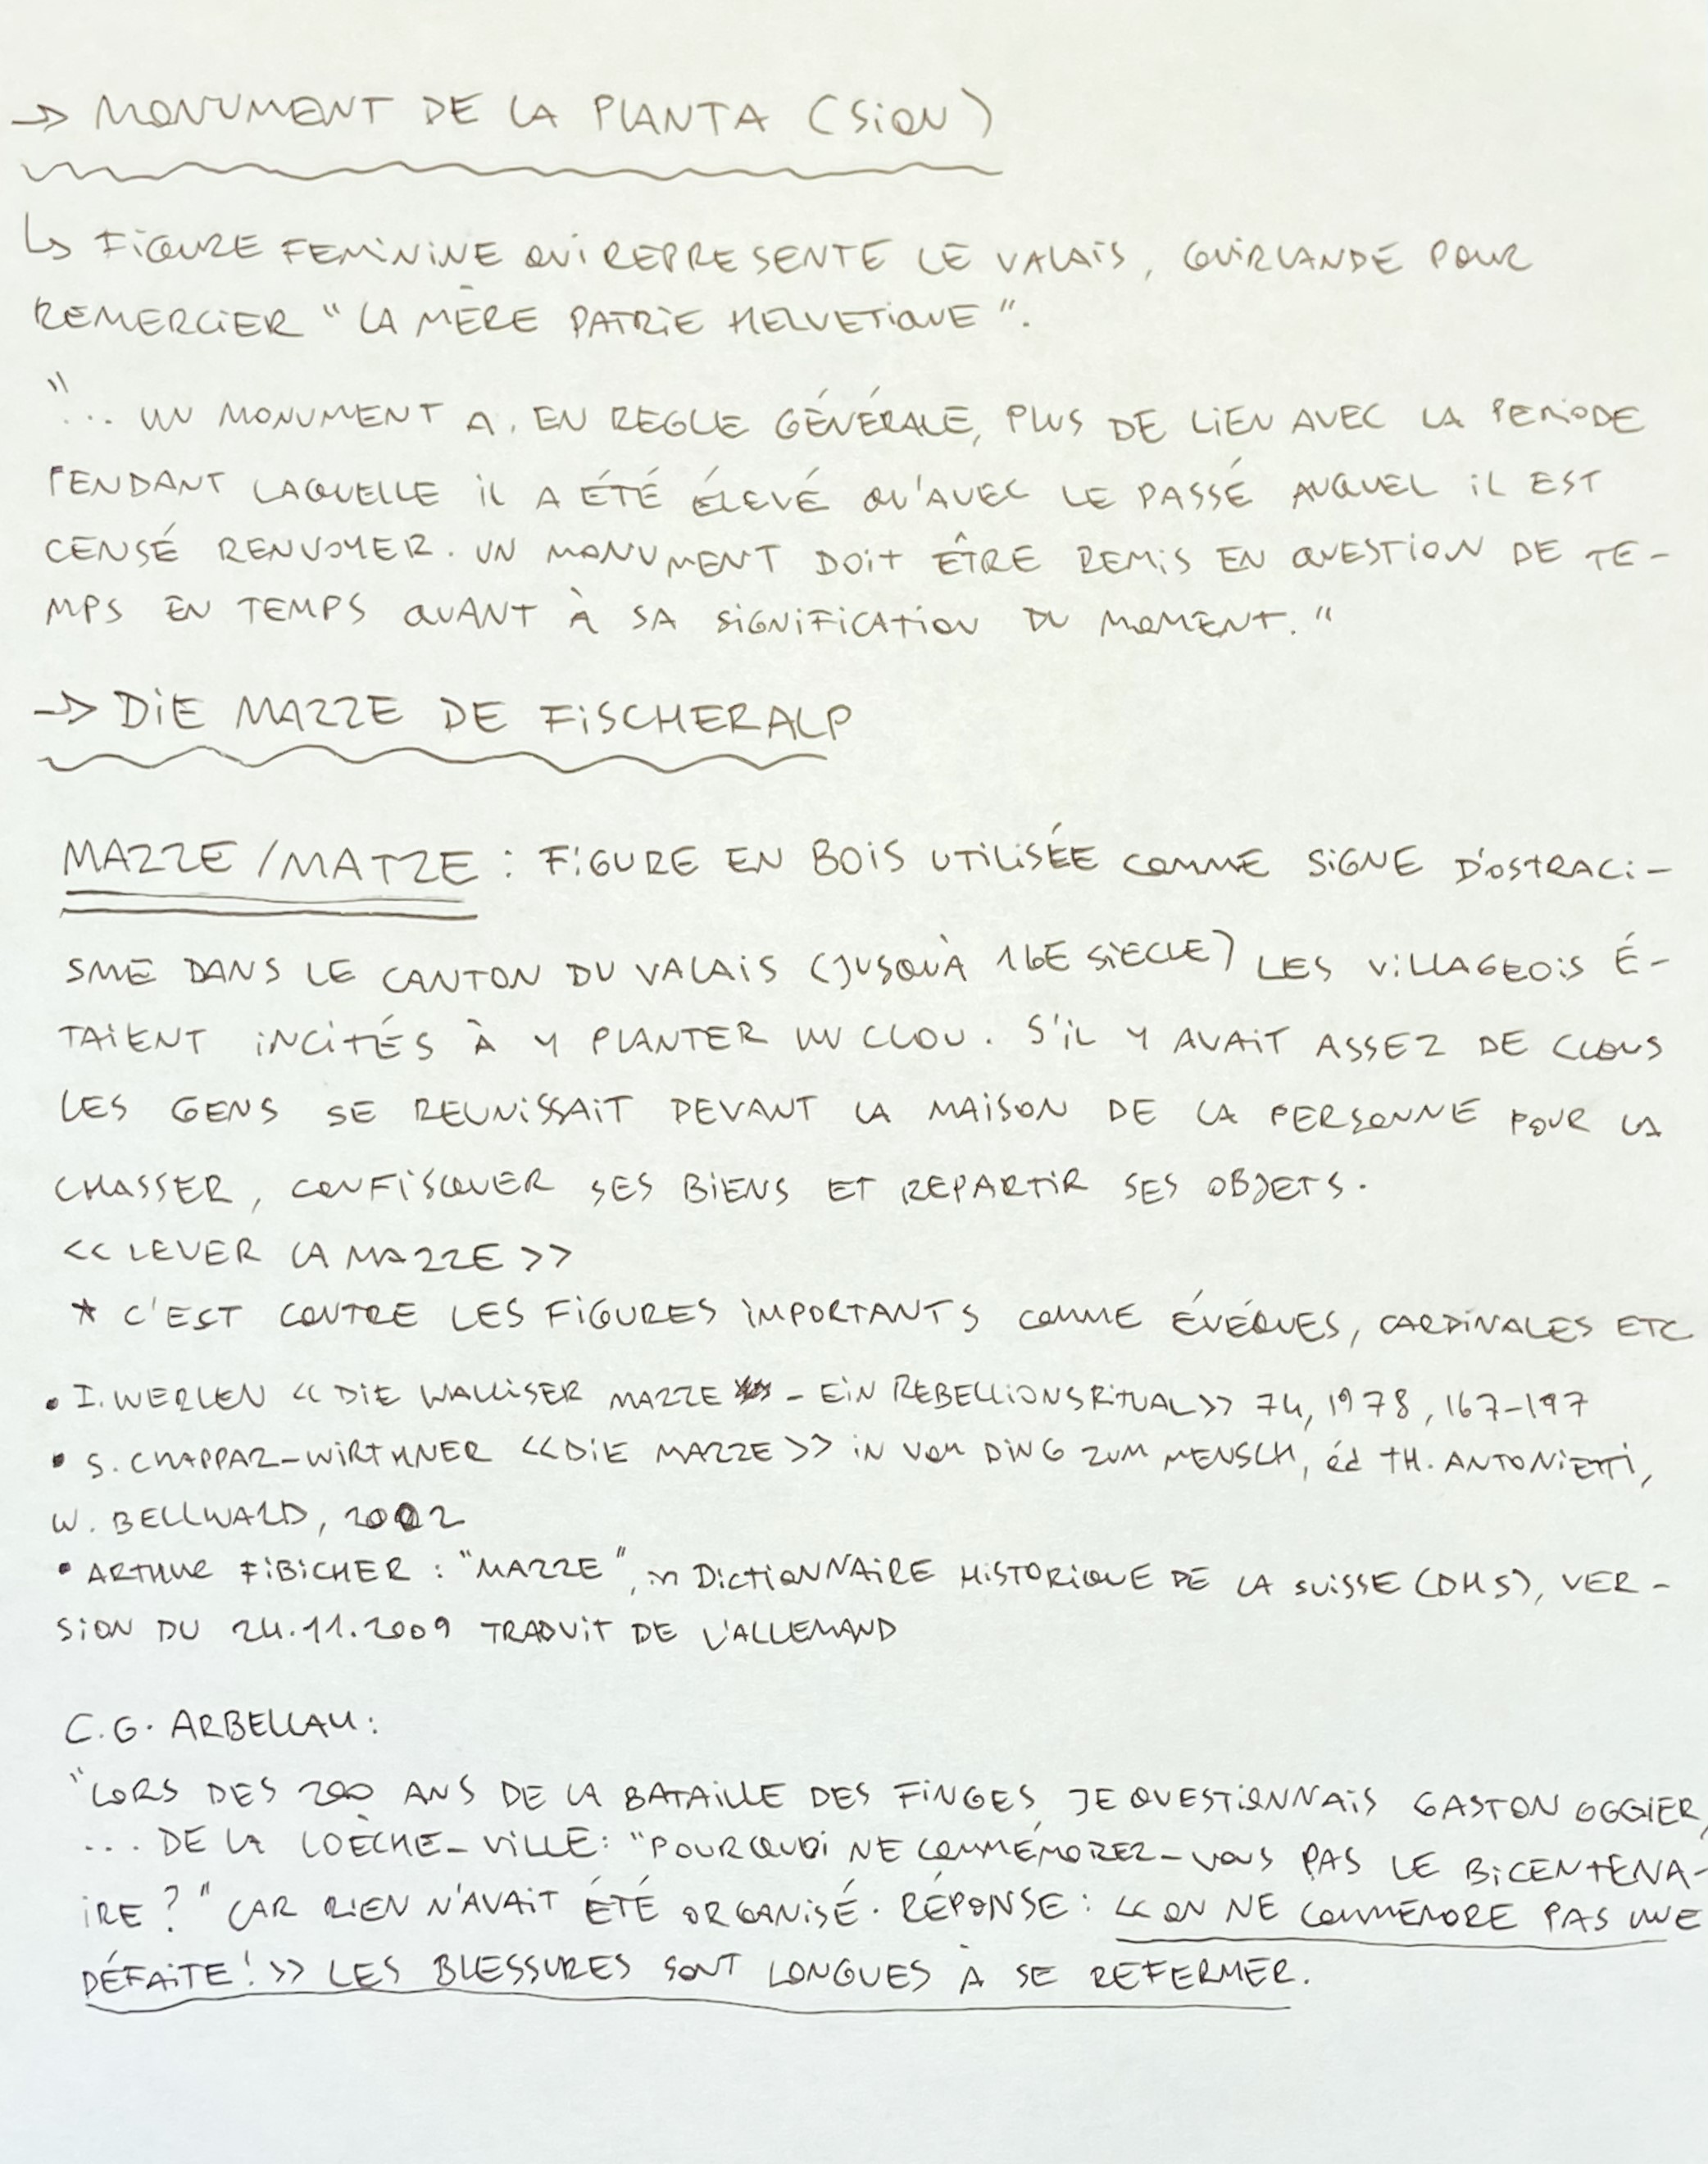 → MONUMENT DE LA PLANTA (SION)
↳ FIGURE FEMININE QUI REPRESENTE LE VALAIS, GUIRLANDE POUR
REMERCIER "LA MÈRE PATRIE HELVETIQUE".
"... UN MONUMENT A, EN REGLE GÉNÉRALE, PLUS DE LIEN AVEC LA PERIODE
PENDANT LAQUELLE IL A ÉTÉ ÉLEVÉ QU'AVEC LE PASSÉ AUQUEL IL EST
CENSÉ RENVOYER. UN MONUMENT DOIT ÊTRE REMIS EN QUESTION DE TE-
MPS EN TEMPS QUANT À SA SIGNIFICATION DU MOMENT."
→ DIE MAZZE DE FISCHERALP
MAZZE / MATZE : FIGURE EN BOIS UTILISÉE COMME SIGNE D'OSTRACI-
SME DANS LE CANTON DU VALAIS (JUSQU'À 16E SIECLE) LES VILLAGEOIS É-
TAIENT INCITÉS À Y PLANTER UN CLOU. S'IL Y AVAIT ASSEZ DE CLOUS
LES GENS SE REUNISSAIT DEVANT LA MAISON DE LA PERSONNE POUR LA
CHASSER, CONFISQUER SES BIENS ET REPARTIR SES OBJETS.
<< LEVER LA MAZZE >>
* C'EST CONTRE LES FIGURES IMPORTANTS COMME ÉVÉQUES, CARDINALES ETC
• I. WERLEN << DIE WALLISER MAZZE - EIN REBELLIONSRITUAL >> 74, 1978, 167-197
• S. CHAPPAZ-WIRTHNER << DIE MAZZE >> IN VOM DING ZUM MENSCH, éd TH. ANTONIETTI,
W. BELLWALD, 2002
• ARTHUR FIBICHER : "MAZZE", in DICTIONNAIRE HISTORIQUE DE LA SUISSE (DHS), VER-
SION DU 24.11.2009 TRADUIT DE L'ALLEMAND
C.G. ARBELLAY:
"LORS DES 200 ANS DE LA BATAILLE DES FINGES JE QUESTIONNAIS GASTON OGGIER,
... DE LA LOÈCHE-VILLE: "POURQUOI NE COMMÉMOREZ-VOUS PAS LE BICENTENA-
IRE ?" CAR RIEN N'AVAIT ÉTÉ ORGANISÉ. RÉPONSE : << ON NE COMMÉMORE PAS UNE
DÉFAITE ! >> LES BLESSURES SONT LONGUES À SE REFERMER.